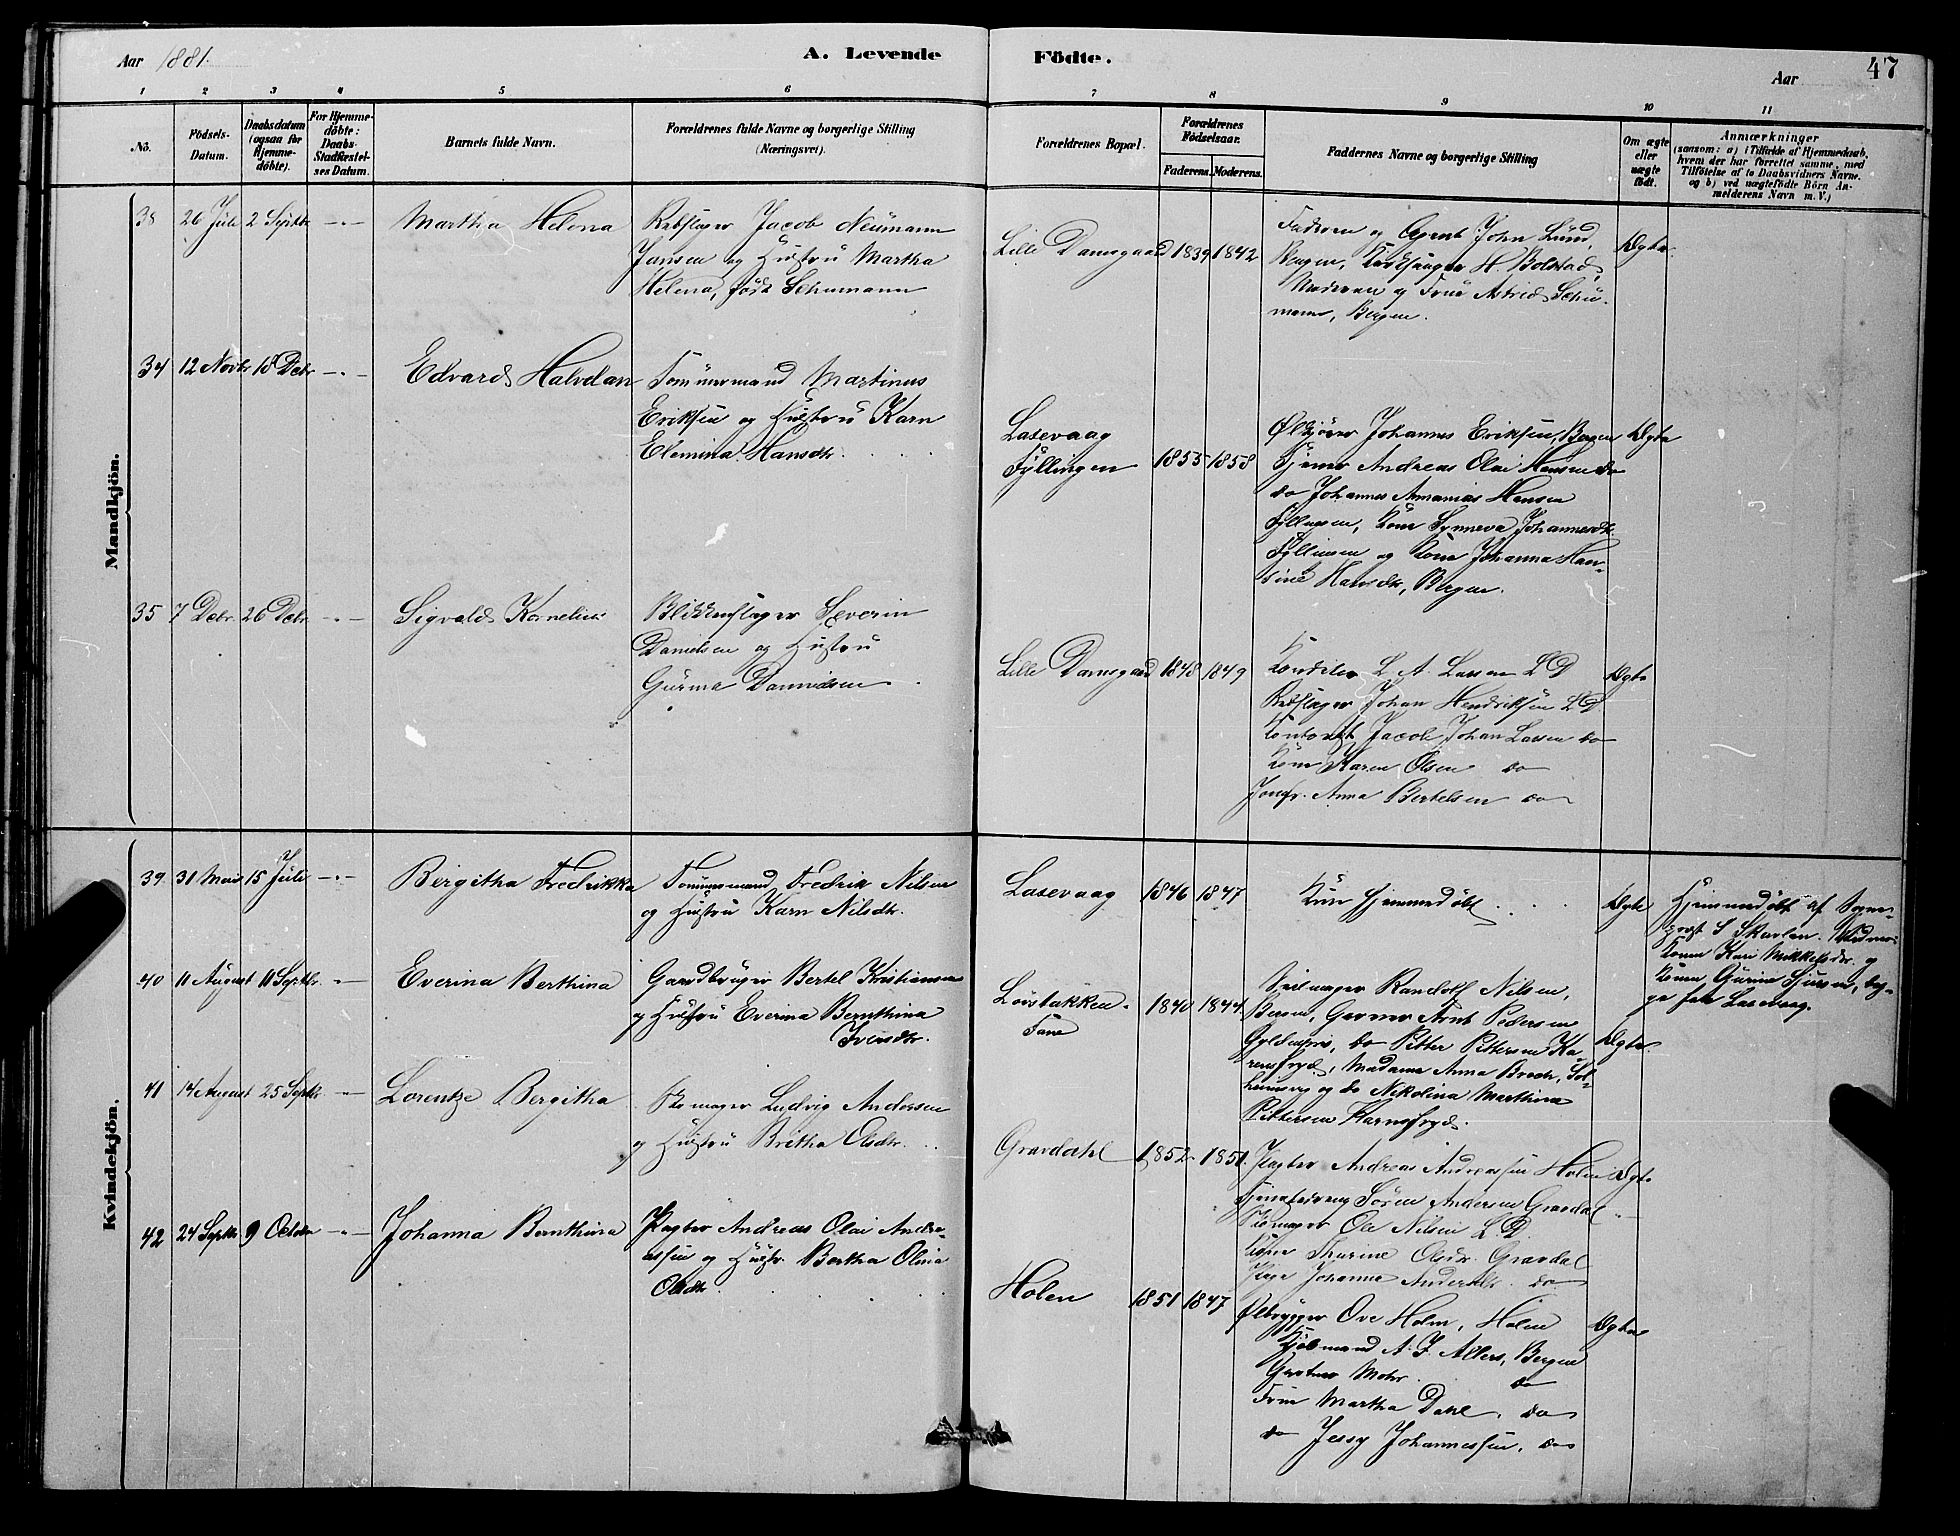 Aar 1881.
A. Levende Födte.
Aar
47
1 2 3 4 5 6 7 8 9 10 11
No.
Födsels-Datum.
Daabsdatum (ogsaa for Hjemme-döbte).
For Hjemme-döbte: Daabs-Stadfæstel-ses Datum.
Barnets fulde Navn.
Forældrenes fulde Navne og borgerlige Stilling (Næringsvei).
Forældrenes Bopæl.
Forældrenes Födselsaar.
Faderens. Moderens.
Faddernes Navne og borgerlige Stilling
Om ægte eller uægte födt.
Anmærkninger
(saasom: a) i Tilfælde af Hjemmedaab,
hvem der har forrettet samme, med
Tilföielse af to Daabsvidners Navne.
og b) ved uægtefödte Börn An-
melderens Navn m. V.)
Mandkjön.
38 26 Juli 2 Septbr -"- Martha Helena
Rebslager Jacob Neumann
Jansen og Hustru Martha
Helena, født Schumann
Lille Damsgaard 1839 1842
Faderen og Agent John Lund,
Bergen, Kirkesanger H. Bolstad,
Moderen og Frue Astrid Schu-
mann, Bergen.
Ægte
34 12 Novbr 18 Decbr -"- Edvard Halvdan
Tømmermand Martinus
Eriksen og Hustru Karn
Elemina Hansdtr.
Laxevaag
Fyllingen 1855 1858
Ølkjører Johannes Eriksen, Bergen
Tjener Andreas Olai Hansen do
do Johannes Ananias Hansen
Fyllingen, Kone Synneva Johannesdtr.
Fyllingen og Kone Johanna Han-
sine Hansdtr, Bergen.
Ægte
35 7 Decbr. 26 Decbr. -"- Sigvald Kornelius
Blikkenslager Severin
Danielsen og Hustru
Gurina Danielsen
Lille Damsgaard 1848 1849
L. A. Lassen L D
Rebslager Johan Hendriksen L D
Kontorist Jacob Johan Lassen do
Kone Karen Olsen do
Jomfr. Anna Bertelsen do
Ægte
Kvindekjön.
39 31 Mai 15 Juli -"- Birgitha Fredrikka
Tømmermand Fredrik Nilsen
og Hustru Karn Nilsdtr.
Laxevaag 1846 1847
Kun hjemmedøbt
Ægte
Hjemmedøbt af Sogne-
præst S Skavlan.
Konen Kari Mikkelsdtr. og
Konen Gurine Sjursen, beg-
ge fra Laxevaag.
40 11 August 11 Septbr. -"- Everina Berthina
Gaardbruger Bertel Kristiansen
og Hustru Everina Bernthina
Iversdtr.
Løvstakken
Fane 1840 1844.
Seilmager Randolf Nilsen,
Bergen, Garver Arnt Pedersen
Gyldenpris, do Pitter Pittersen Ka-
rensfryd, Madame Anna Broch, Sol-
heimsvig og do Nikolina Marthina
Pittersen Karnsfryd.
Ægte
41 14 August 25 Septbr -"- Lorentze Bergitha
Skomager Ludvig Andersen
og Hustru Britha Olsdtr.
Gravdahl 1852 1851.
Pagter Andreas Andreassen Holen
Søren Andersen Gravdal
Skomager Ole Nilsen L D.
Kone Thurine Olsdr. Gravdal
Pige Johanna Andersdtr. do
Ægte
42 24 Septbr 9 Octobr -"- Johanna Bernthina
Pagter Andreas Olai Andre-
assen og Hustr. Bertha Olina
Olsdtr
Holen 1851 1847
Ølbrygger Ove Holm, Holen
Kjøbmand A. J. Allers, Bergen
Gartner Mohr. do
Frue Martha Dahl, do
do Jessy Johannessen, do
Ægte